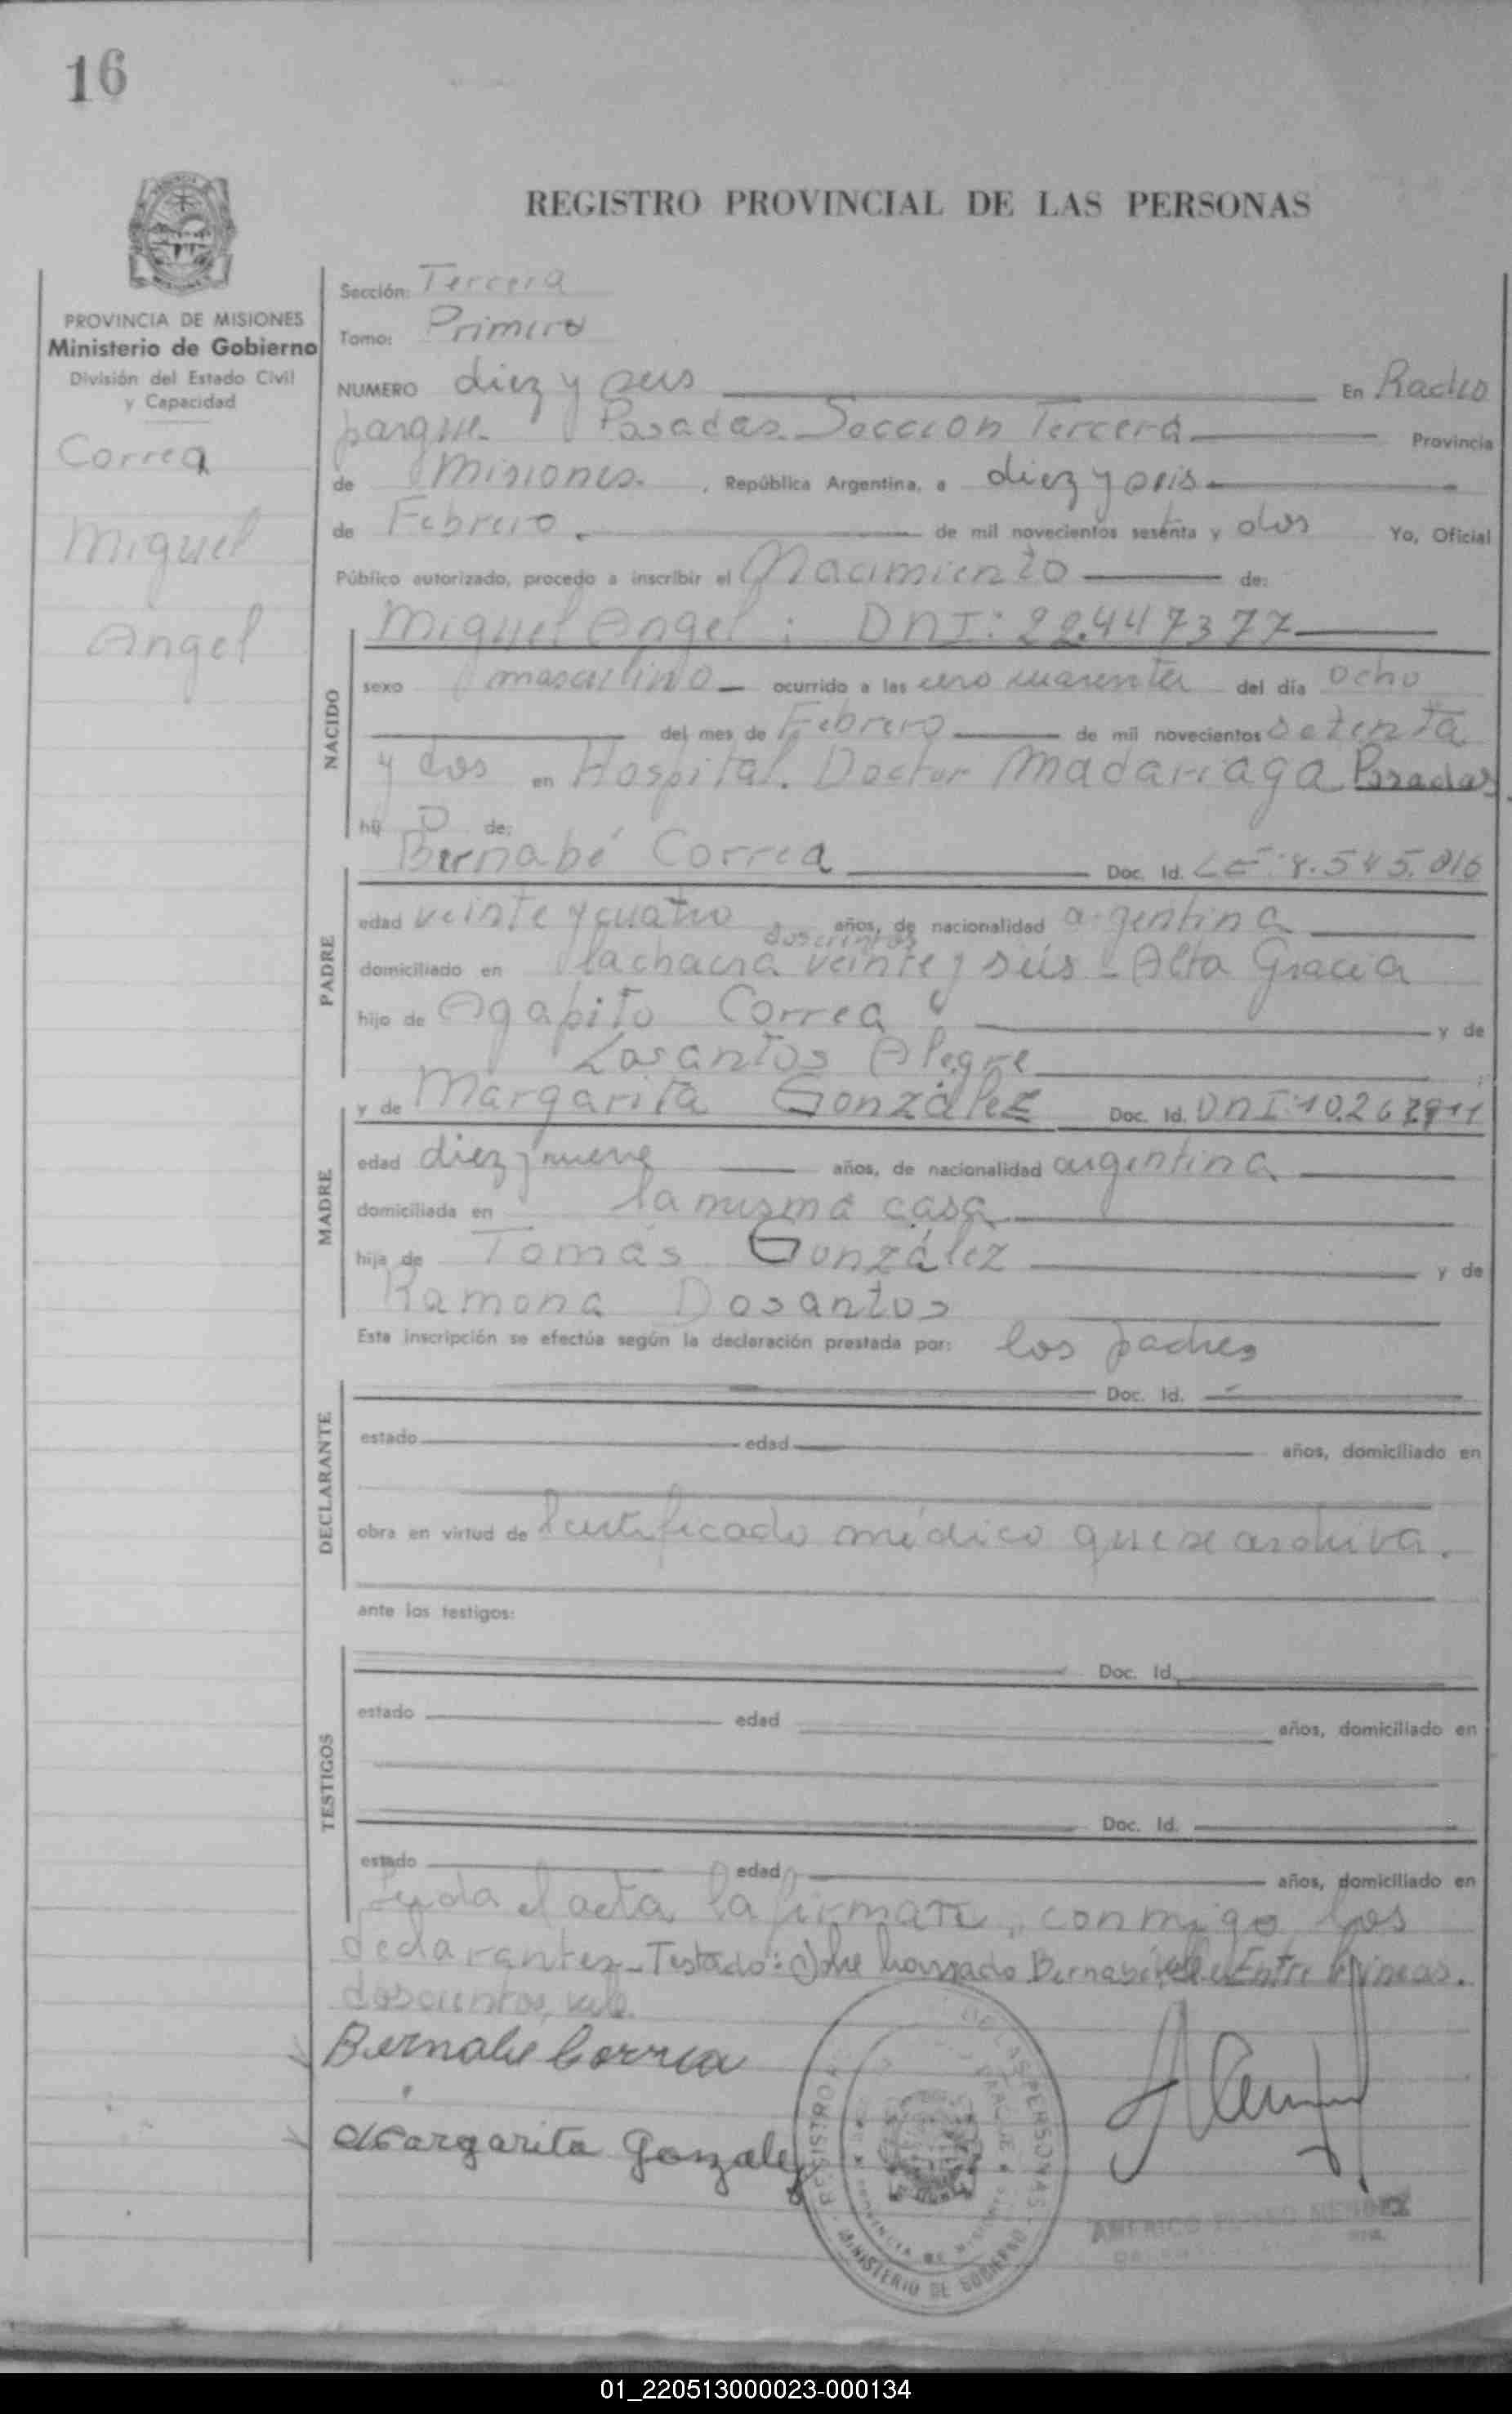 16
REGISTRO PROVINCIAL DE LAS PERSONAS
PROVINCIA DE MISIONES
Ministerio de Gobierno
División del Estado Civil
y Capacidad
Correa
Miguel
Angel
Sección: Tercera
Tomo: Primero
NUMERO diez y seis En Radio
parque Posadas Seccion Tercera Provincia
de Misiones. , República Argentina, a diez y seis
de Febrero de mil novecientos sesenta y dos Yo, Oficial
Público autorizado, procedo a inscribir el Nacimiento de:
NACIDO
Miguel Angel; DNI: 22.447377
sexo masculino ocurrido a las cero cuarenta del día ocho
del mes de Febrero de mil novecientos setenta
y dos en Hospital. Doctor Madariaga Posadas.
hij o de:
PADRE
Bernabé Correa Doc. Id. LE. 8.545.016
edad veinte y cuatro años, de nacionalidad argentina
doscientos
domiciliado en la chacra veinte y seis - Alta Gracia
hijo de Agapito Correa y de
Losantos Alegre
MADRE
y de Margarita González Doc. Id. DNI 10.267.911
edad diez y nueve años, de nacionalidad argentina
domiciliada en la misma casa
hija de Tomás González y de
Ramona Dosantos
Esta inscripción se efectúa según la declaración prestada por: los padres
DECLARANTE
Doc. Id.
estado edad años, domiciliado en
obra en virtud de certificado médico que se archiva.
ante los testigos:
TESTIGOS
Doc. Id.
estado edad años, domiciliado en
Doc. Id.
estado edad años, domiciliado en
Leida el acta, la firman, conmigo los
declarantes - Testado: Sobre Bernabé, Entre lineas.
doscientos, vale
Bernabe Correa
Margarita Gonzalez
REGISTRO DE LAS PERSONAS
MINISTERIO DE GOBIERNO
PROVINCIA DE MISIONES
AMERICO MENDEZ
01_220513000023-000134